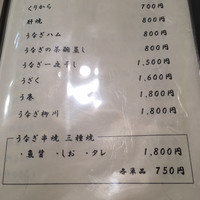 くりから 700円
肝焼 800円
うなぎハム 800円
うなぎの茶碗蒸し 800円
うなぎ一夜干し 1,500円
うざく 1,600円
う巻 1,800円
うなぎ柳川 1,800円
うなぎ串焼 三種焼
・蒸賛 ・しお ・タレ 1,800円
各単品 750円